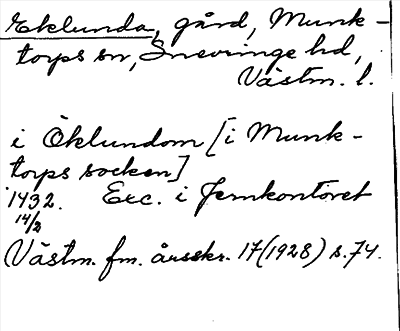 Eklunda, gård, Munk-
torps sn, Snevringe hd,
Västm. l.
i Öklundom [i Munk-
torps socken]
1432. Exc. i Jernkontoret
14/2
Västm. fm. årsskr. 17(1928) s. 74.